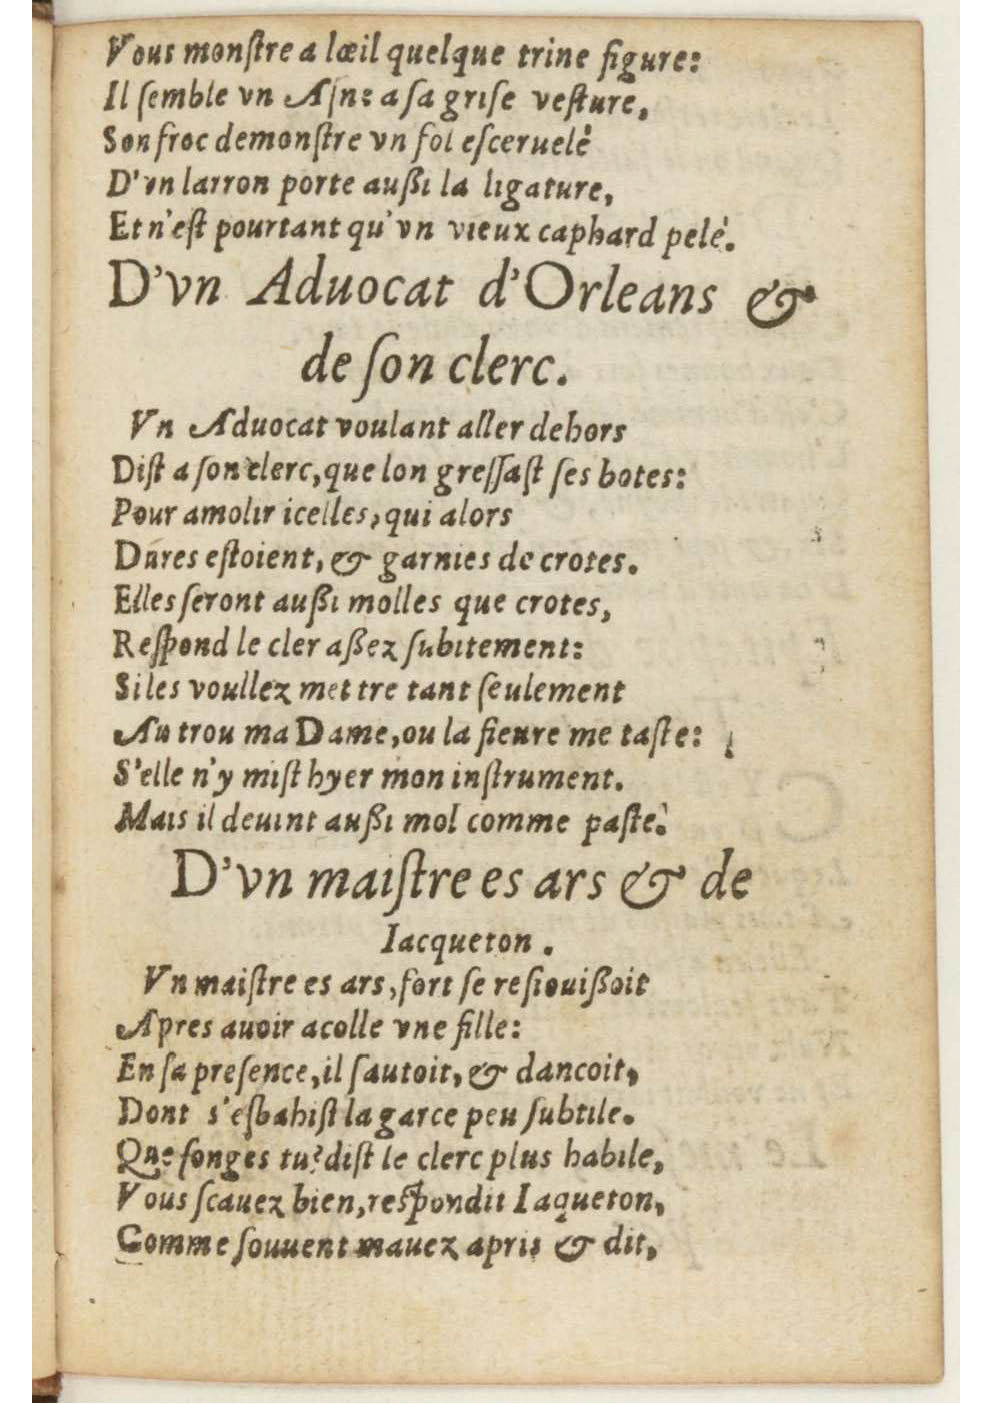 Vous monſtre a lœil quelque trine figure:
Il ſemble vn Aſne a ſa griſe veſture,
Son froc demonſtre vn fol eſceruelé
D'vn larron porte außi la ligature,
Et n'eſt pourtant qu'vn vieux caphard pelé.
D'vn Aduocat d'Orleans &
de ſon clerc.
Vn Aduocat voulant aller dehors
Diſt a ſon clerc, que lon greſſaſt ſes botes:
Pour amolir icelles, qui alors
Dures eſtoient, & garnies de crotes.
Elles ſeront außi molles que crotes,
Reſpond le cler aßez ſubitement:
Si les voullez mettre tant ſeulement
Au trou ma Dame, ou la fieure me taſte:
S'elle n'y miſt hyer mon inſtrument.
Mais il deuint außi mol comme paſte.
D'vn maiſtre es ars & de
Iacqueton.
Vn maiſtre es ars, fort ſe reſiouißoit
Apres auoir acolle vne fille:
En ſa preſence, il ſautoit, & dancoit,
Dont s'eſbahiſt la garce peu ſubtile.
Que ſonges tu? diſt le clerc plus habile,
Vous ſcauez bien, reſpondit Iaqueton,
Comme ſouuent mauez apris & dit,